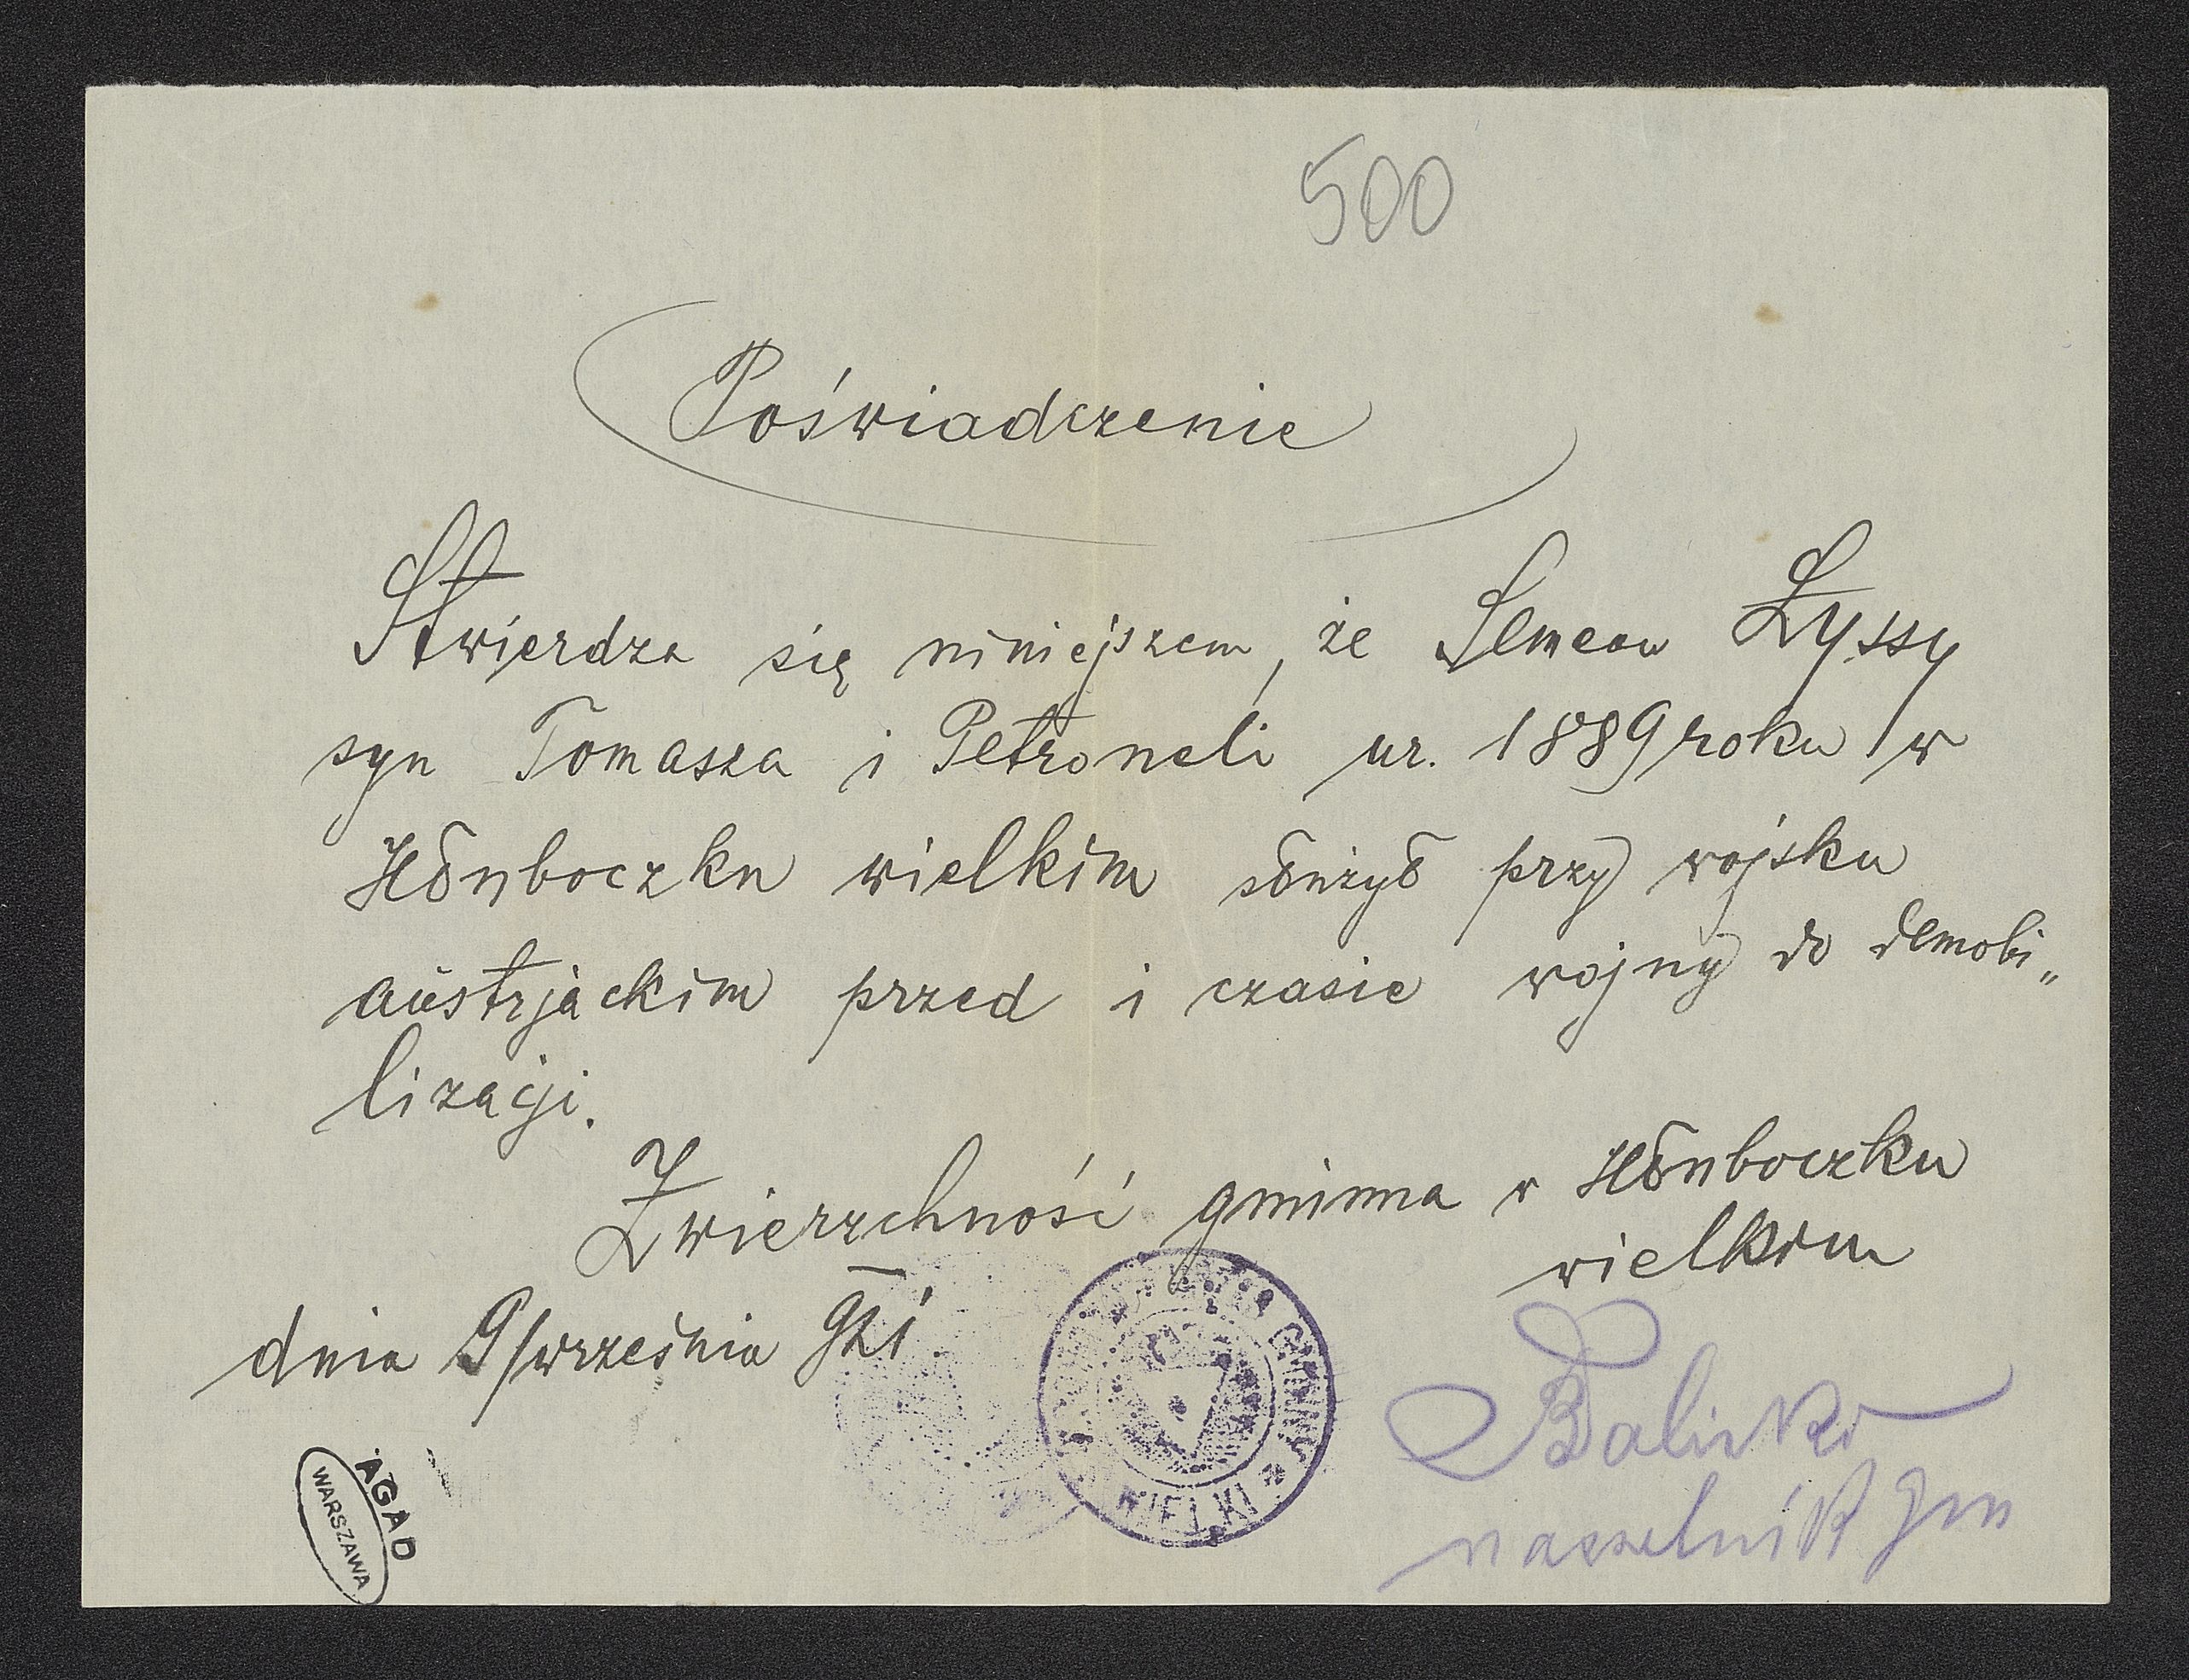 500
Poświadczenie
Stwierdza się niniejszem, że Semeon Łyssy
syn Tomasza i Petroneli ur. 1889 roku w
Hłuboczku wielkim służył przy wojsku
austrjackim przed i czasie wojny do demobi„
lizacji.
Zwierzchność gminna w Hłuboczku
wielkim
dnia 9/września 921.
GMINY
WIELKI
naczelnik gm
AGAD
WARSZAWA